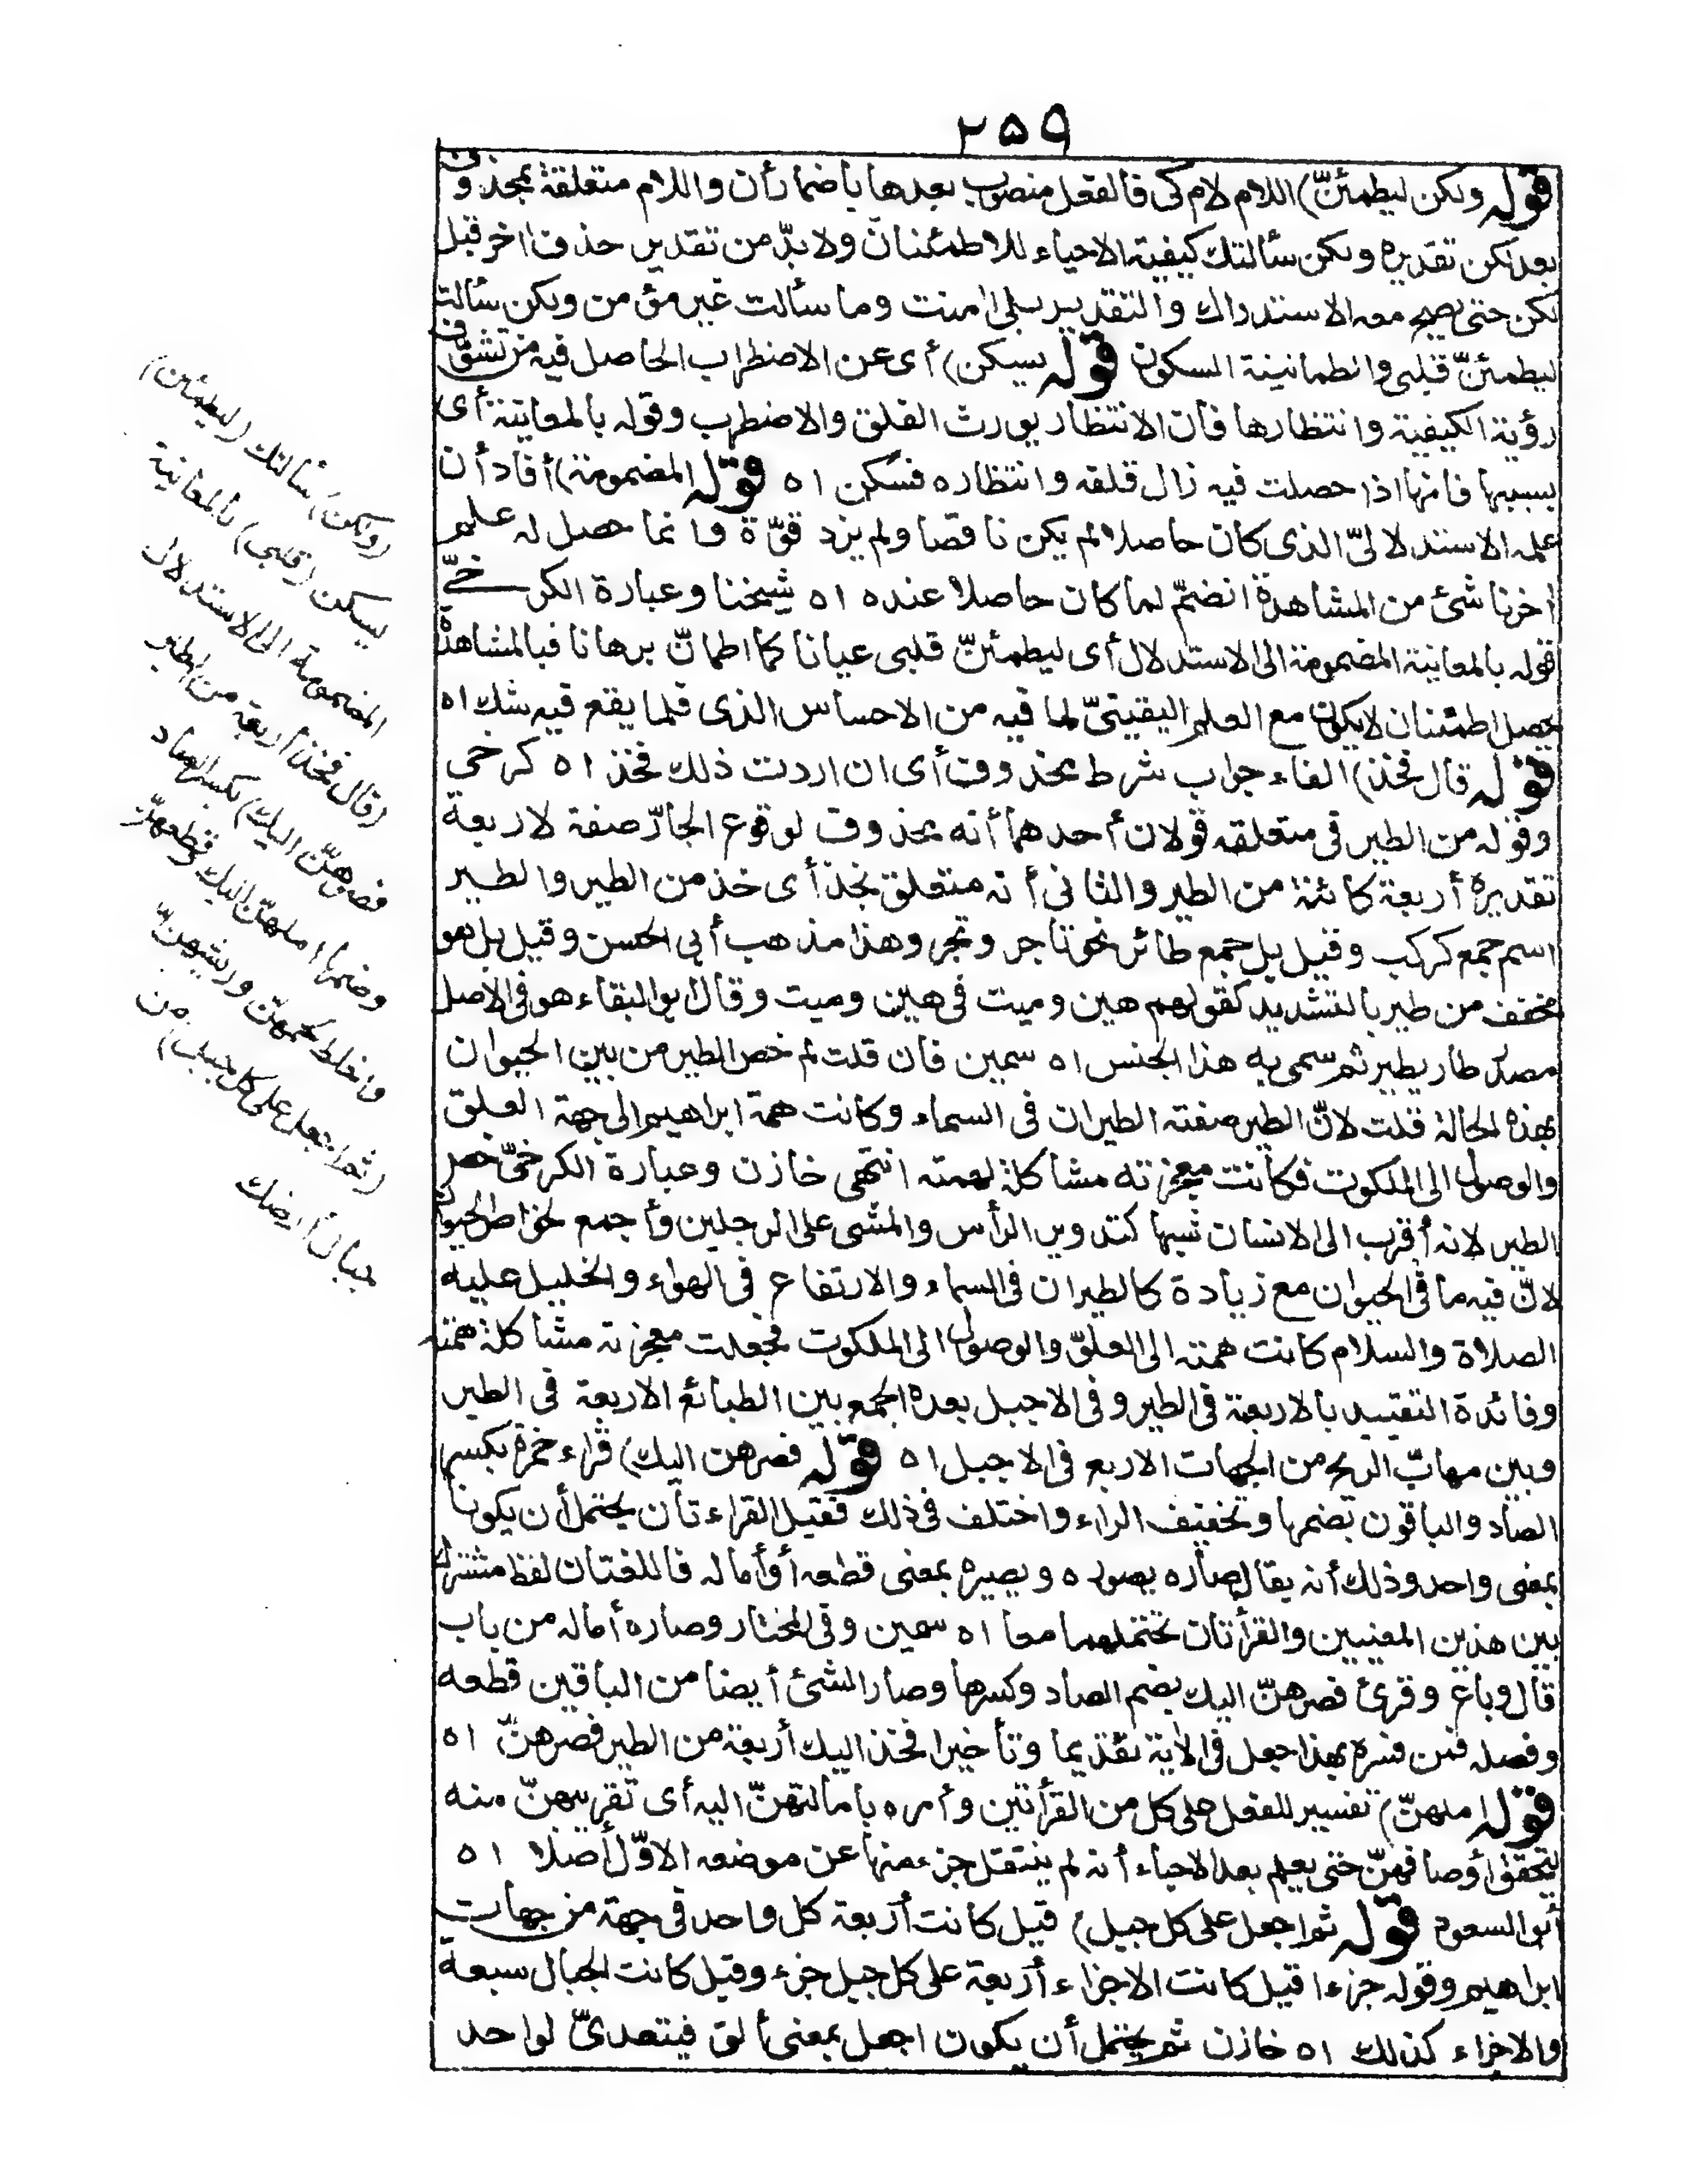 ٢٥٩
قوله ولكن ليطمئنّ) اللام لام كى فالفعل منصوب بعدها باضمار أن واللام متعلقة بمحذوف
بعد لكن تقديره ولكن سألتك كيفية الاحياء للاطمئنان ولا بدّ من تقدير حذف اخر قبل
لكن حتى يصح معه الاستدراك والتقدير بلى امنت وما سألت غير مؤمن ولكن سألت
ليطمئنّ قلبى والطمانينة السكون قوله يسكن) أى عن الاضطراب الحاصل فيه من تشوّف
رؤية الكيفية وانتظارها فأن الانتظار يورث القلق والاضطراب وقوله بالمعاينة أى
بسببها فانها اذا حصلت فيه زال قلقه وانتظاره فسكن اه قوله المضمومة) أفاد أن
علمه الاستدلالىّ الذى كان حاصلا لم يكن ناقصا ولم يزد قوّة وانما حصل له علم
اخر ناشئ من المشاهدة انضمّ لما كان حاصلا عنده اه شيخنا وعبارة الكرخىّ
قوله بالمعاينة المضمومة الى الاستدلال أى ليطمئنّ قلبى عيانا كما اطمانّ برهانا فبالمشاهدة
يحصل اطمئنان لا يكون مع العلم اليقينىّ لما فيه من الاحساس الذى قلما يقع فيه شك اه
قوله قال فخذ) الفاء جواب شرط محذوف أى ان اردت ذلك فخذ اه كرخى
وقوله من الطير فى متعلقه قولان أحدهما أنه محذوف لوقوع الجارّ صفة لاربعة
تقديره أربعة كائنة من الطير والثانى أنه متعلق بخذ أى خذ من الطير والطير
اسم جمع كركب وقيل بل جمع طائر نحو تاجر وتجر وهذا مذهب أبى الحسن وقيل بل هو
مخفف من طير بالتشديد كقولهم هين وميت فى هين وميت وقال ابو البقاء هو فى الاصل
مصدر طار يطير ثم سمى به هذا الجنس اه سمين فان قلت لم خص الطير من بين الحيوان
بهذه الحالة قلت لانّ الطير صفته الطيران فى السماء وكانت همة ابراهيم الى جهة العلو
والوصول الى الملكوت فكانت معجزته مشاكلة لهمته انتهى خازن وعبارة الكرخىّ خص
الطير لانه أقرب الى الانسان شبها كتدوير الرأس والمشى على الرجلين وأجمع لخواص الحيوان
لانّ فيه ما فى الحيوان مع زيادة كالطيران فى السماء والارتفاع فى الهواء والخليل عليه
الصلاة والسلام كانت همته الى العلوّ والوصول الى الملكوت فجعلت معجزته مشاكلة لهمته
وفائدة التقييد بالاربعة فى الطير وفى الاجبل بعده الجمع بين الطبائع الاربعة فى الطير
وبين مهابّ الريح من الجهات الاربع فى الاجبل اه قوله فصرهن اليك) قراء حمزة بكسر
الصاد والباقون بضمها وتخفيف الراء واختلف فى ذلك فقيل القراءتان يحتمل أن يكونا
بمعنى واحد وذلك أنه يقال صاره يصوره ويصيره بمعنى قطعه أو أماله فاللغتان لفظ مشترك
بين هذين المعنيين والقرأتان تحتملهما معا اه سمين وفى المختار وصاره أماله من باب
قال وباع وقرئ فصرهنّ اليك بضم الصاد وكسرها وصار الشئ أيضا من البابين قطعه
وفصله فمن فسره بهذا جعل فى الاية تقديما وتأخيرا فخذ اليك أربعة من الطير فصرهنّ اه
قوله املهنّ) تفسير للفعل على كل من القرأتين وأمره بامالتهنّ اليه أى تقريبهنّ منه
لتحقق أوصافهنّ حتى يعلم بعد الاحياء أنه لم ينتقل جزء منها عن موضعه الاوّل أصلا اه
أبو السعود قوله ثم اجعل على كل جبل) قيل كانت أربعة كل واحد فى جهة من جهات
ابراهيم وقوله جزءا قيل كانت الاجزاء أربعة على كل جبل جزء وقيل كانت الجبال سبعة
والاجزاء كذلك اه خازن ثم يحتمل أن يكون اجعل بمعنى ألق فيتعدىّ لواحد
(ولكن) سألتك (ليطمئن)
يسكن (قلبى) بالمعاينة
المضمومة الى الاستدلال
(قال فخذ أربعة من الطير
فصرهنّ اليك) بكسر الصاد
وضمها املهنّ اليك وقطعهنّ
واخلط لحمهنّ وريشهنّ
(ثم اجعل على كل جبل) من
جبال أرضك